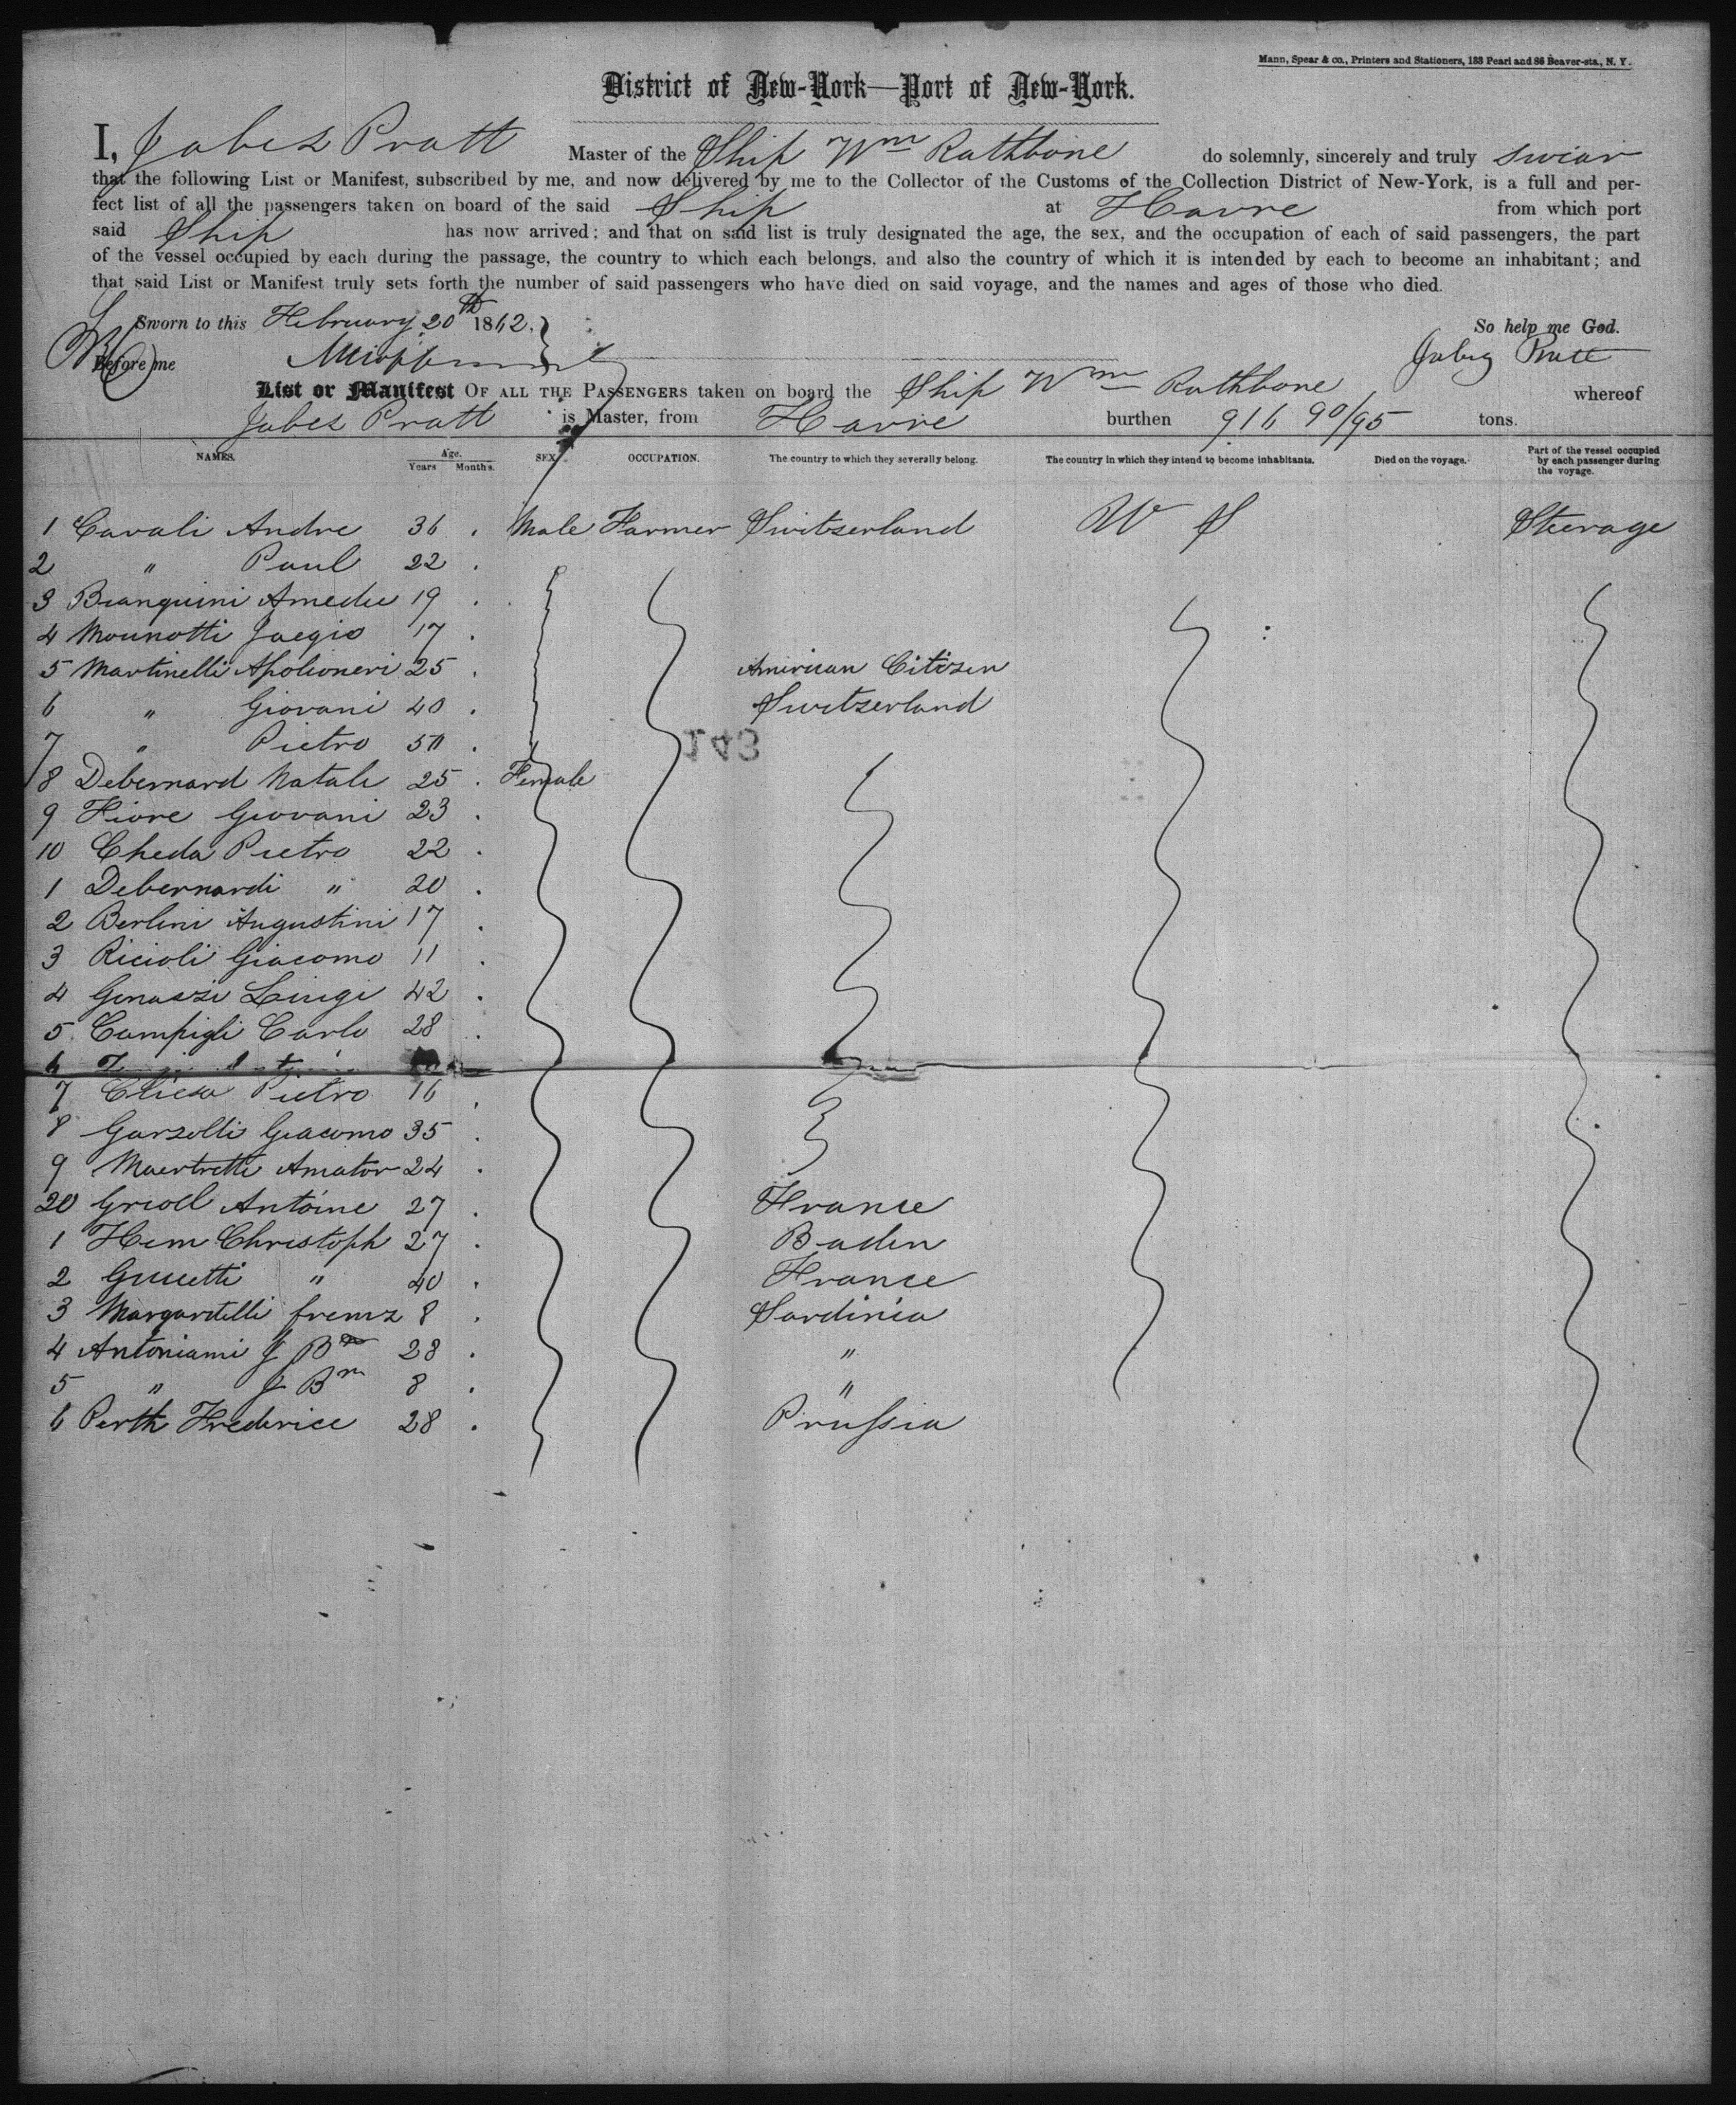 Mann, Spear & co., Printers and Stationers, 183 Pearl and 86 Beaver-sts., N. Y.
District of New-York—Port of New-York.
I, Jabez Pratt Master of the Ship Wm Rathbone do solemnly, sincerely and truly swear
that the following List or Manifest, subscribed by me, and now delivered by me to the Collector of the Customs of the Collection District of New-York, is a full and per-
fect list of all the passengers taken on board of the said Ship at Havre from which port
said Ship has now arrived; and that on said list is truly designated the age, the sex, and the occupation of each of said passengers, the part
of the vessel occupied by each during the passage, the country to which each belongs, and also the country of which it is intended by each to become an inhabitant; and
that said List or Manifest truly sets forth the number of said passengers who have died on said voyage, and the names and ages of those who died.
Sworn to this February 20th 1862. So help me God.
Before me Jabez Pratt
List or Manifest OF ALL THE PASSENGERS taken on board the Ship Wm Rathbone whereof
Jabez Pratt is Master, from Havre burthen 916 90/95 tons.
NAMES. Age. Years Months. SEX. OCCUPATION. The country to which they severally belong. The country in which they intend to become inhabitants. Died on the voyage. Part of the vessel occupied by each passenger during the voyage.
1 Cavali Andre 36 . Male Farmer Switzerland U S Steerage
2 " Paul 22 .
3 Bianquini Amedee 19 .
4 Mounotti 17 .
5 Martinelli Apolioneri 25 . American Citizen
6 " Giovani 40 . Switzerland
7 " Pietro 50 .
143
8 Debernard Natale 25 . Female
9 Fiore Giovani 23 .
10 Cheda Pietro 22 .
1 Debernardi " 20 .
2 Berlini Augustini 17 .
3 Ricioli Giacomo 11 .
4 Genassi Luigi 42 .
5 Campigli Carlo 28 .
6
7 Pietro 16 .
8 Garzolli Giacomo 35 .
9 Maertretti Amator 24 .
20 Antoine 27 . France
1 Hem Christoph 27 . Baden
2 " 40 . France
3 Margaritelli 8 . Sardinia
4 Antoniami J Bte 28 . "
5 " J Bn 8 . "
6 Perth Frederice 28 . Prussia